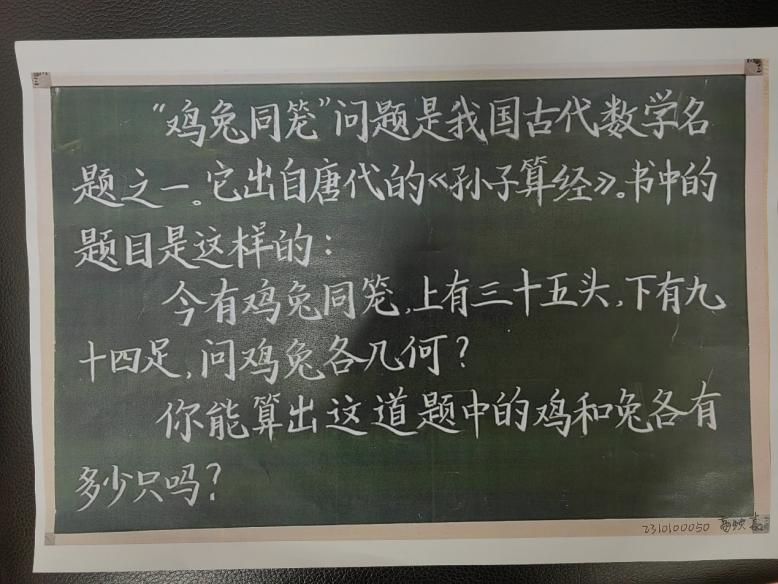 “鸡兔同笼”问题是我国古代数学名
题之一。它出自唐代的《孙子算经》。书中的
题目是这样的：
今有鸡兔同笼,上有三十五头,下有九
十四足,问鸡兔各几何?
你能算出这道题中的鸡和兔各有
多少只吗?
2310100050